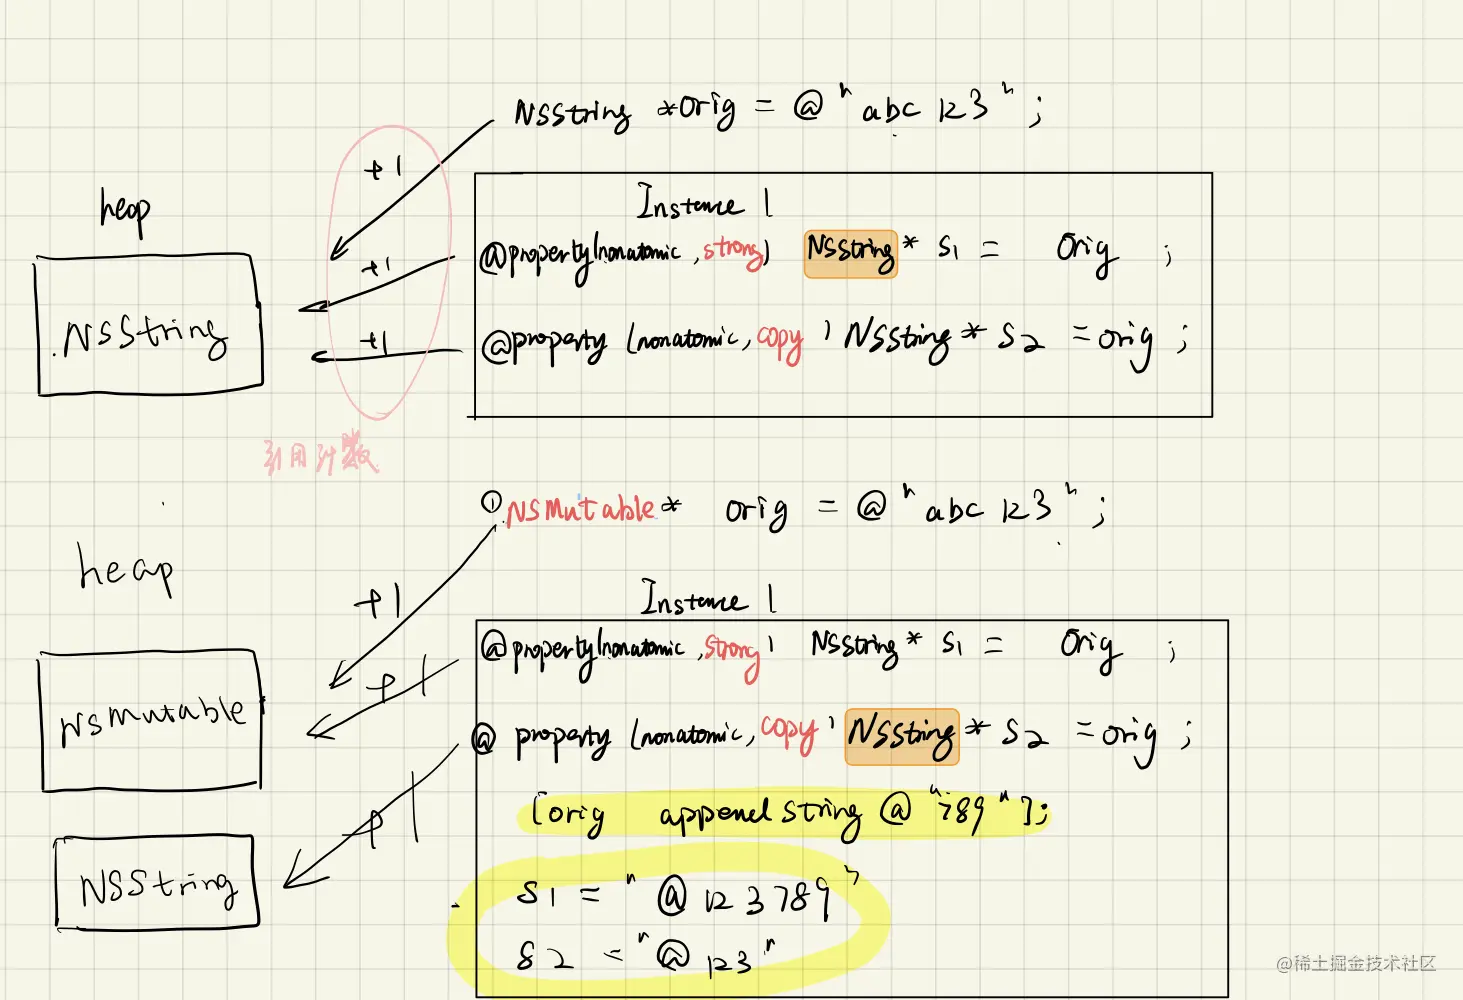 NSString *Orig = @"abc 123";
heap
+1
Instence 1
@property(nonatomic,strong) NSString* S1 = Orig ;
+1
.NSString
@property (nonatomic,copy) NSString* S2 = orig ;
+1
引用计数
① NSMutable* orig = @"abc 123";
heap
+1
Instence 1
@property(nonatomic,strong) NSString* S1 = Orig ;
+1
NSMutable
@ property (nonatomic,copy) NSString* S2 = orig ;
+1
[orig append string @"789"];
NSString
S1 = "@123789"
S2 = "@123"
@稀土掘金技术社区